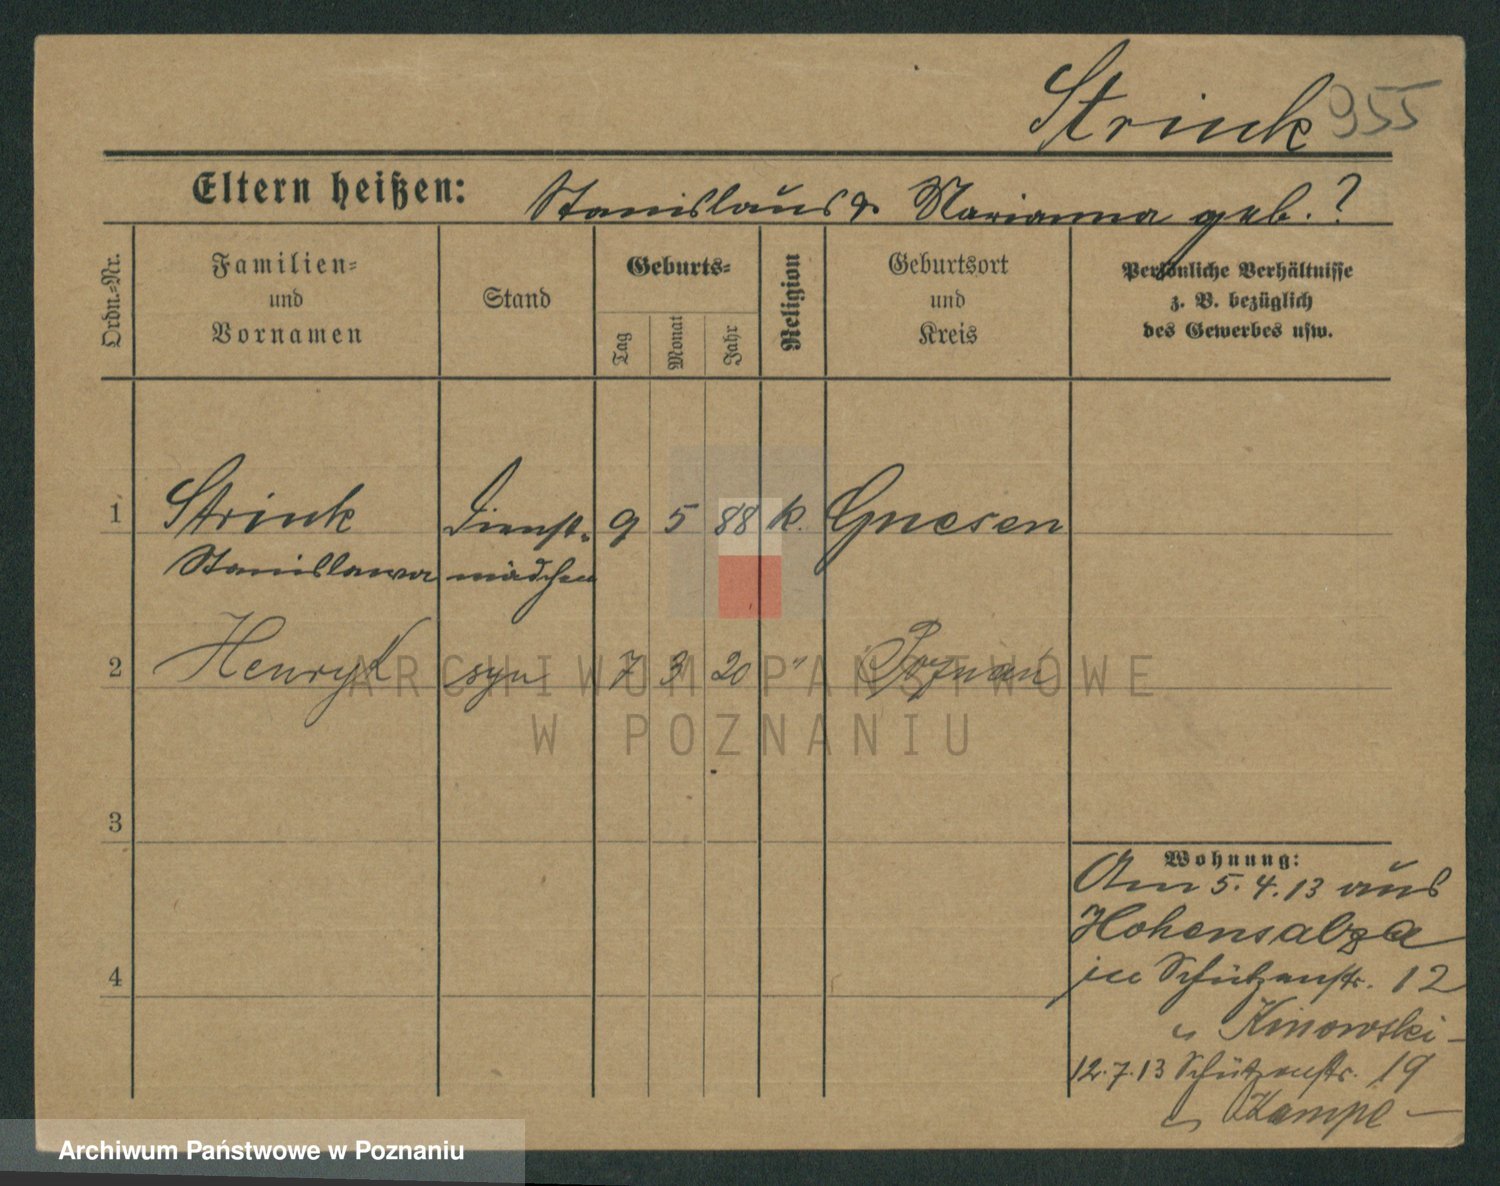 Strink 955
Eltern heißen: Stanislaus & Marianna geb. ?
Ordn.-Nr.
Familien-
und
Vornamen
Stand
Geburts-
Tag
Monat
Jahr
Religion
Geburtsort
und
Kreis
Persönliche Verhältnisse
z. B. bezüglich
des Gewerbes usw.
1 Strink Dienst- 9 5 88 k. Gnesen
Stanislawa mädchen
2 Henryk syn 7 3 20 " Poznań
ARCHIWUM PAŃSTWOWE
W POZNANIU
3
4
Wohnung:
Am 5.4.13 aus
Hohensalza
in Schützenstr. 12
Kinowski
12.7.13 Schützenstr. 19
Kampe
Archiwum Państwowe w Poznaniu